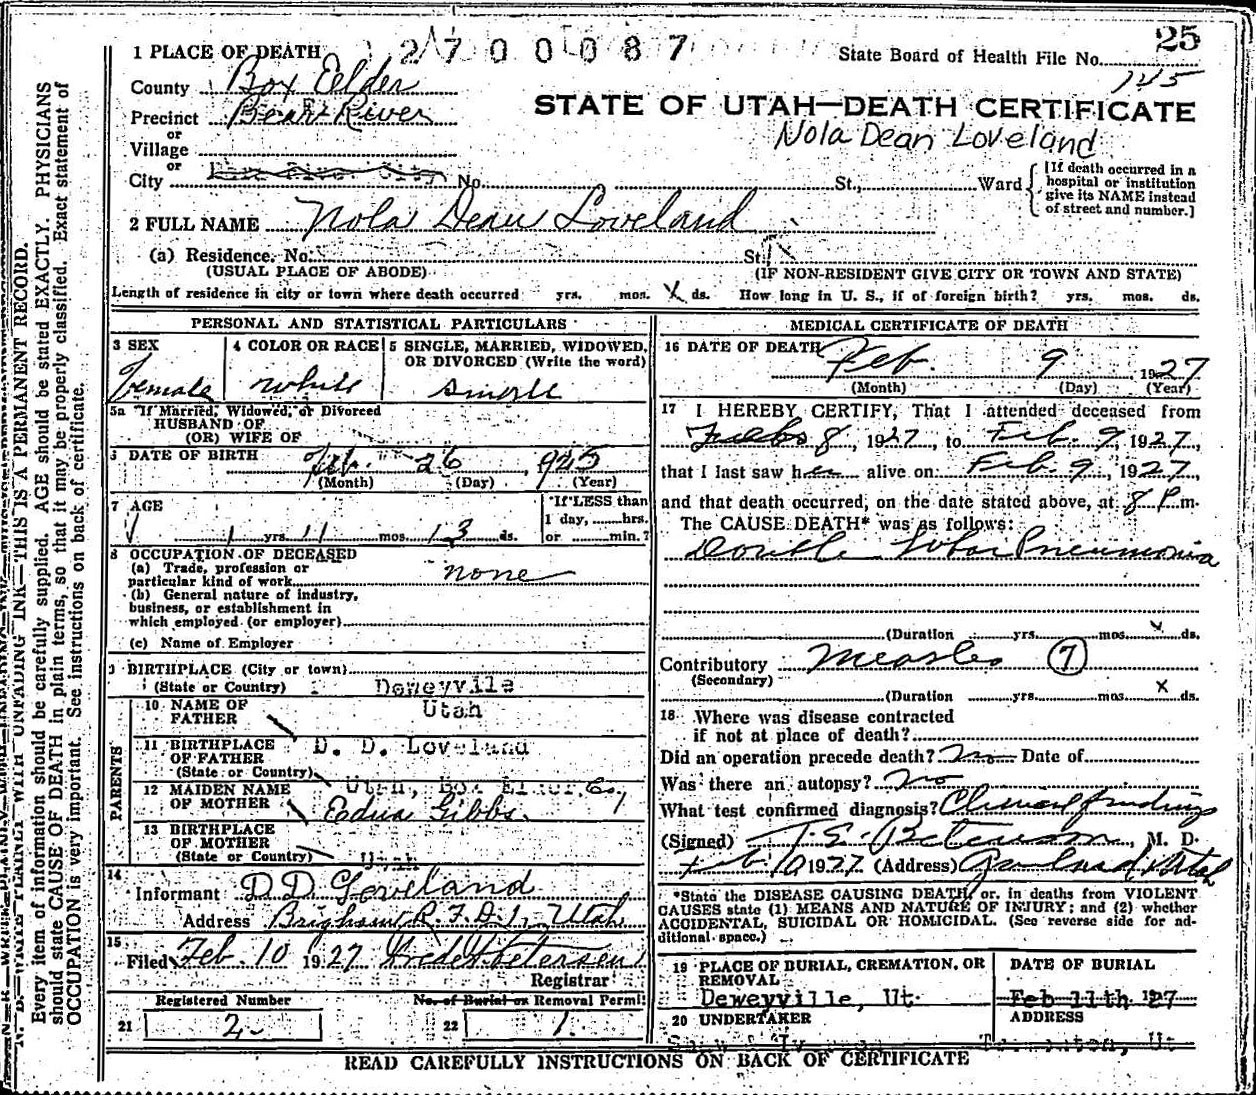 25
1 PLACE OF DEATH 2700087 State Board of Health File No. 145
County Box Elder
STATE OF UTAH—DEATH CERTIFICATE
Precinct Bear River
Nola Dean Loveland
or
Village
or
City No. St., Ward
[If death occurred in a
hospital or institution
give its NAME instead
of street and number.]
2 FULL NAME Nola Dean Loveland
(a) Residence. No. St.
(USUAL PLACE OF ABODE) (IF NON-RESIDENT GIVE CITY OR TOWN AND STATE)
Length of residence in city or town where death occurred yrs. mos. X ds. How long in U. S., if of foreign birth? yrs. mos. ds.
PERSONAL AND STATISTICAL PARTICULARS
3 SEX 4 COLOR OR RACE 5 SINGLE, MARRIED, WIDOWED,
OR DIVORCED (Write the word)
Female White
5a If Married, Widowed, or Divorced
HUSBAND OF
(OR) WIFE OF
6 DATE OF BIRTH Feb. 26, 1925
(Month) (Day) (Year)
7 AGE If LESS than
1 day, hrs.
1 yrs. 11 mos. 13 ds. or min.?
8 OCCUPATION OF DECEASED
(a) Trade, profession or
particular kind of work none
(b) General nature of industry,
business, or establishment in
which employed (or employer)
(c) Name of Employer
9 BIRTHPLACE (City or town)
(State or Country) Deweyvile
10 NAME OF Utah
FATHER
PARENTS
11 BIRTHPLACE D. D. Loveland
OF FATHER
(State or Country)
12 MAIDEN NAME Utah, Box Elder Co,
OF MOTHER Edna Gibbs.
13 BIRTHPLACE
OF MOTHER
(State or Country) Utah
14
Informant D D Loveland
Address Brigham R. F. D. 1, Utah
15
Filed Feb. 10 1927 Fred H Petersen
Registrar
Registered Number No. of Burial or Removal Permit
21 2 22 1
MEDICAL CERTIFICATE OF DEATH
16 DATE OF DEATH Feb. 9 1927
(Month) (Day) (Year)
17 I HEREBY CERTIFY, That I attended deceased from
8, 1927, to Feb. 9, 1927,
that I last saw her alive on Feb. 9, 1927,
and that death occurred, on the date stated above, at 8 P.m.
The CAUSE DEATH* was as follows:
Double Lobar Pneumonia
(Duration yrs. mos. x ds.
Contributory Measles 7
(Secondary)
(Duration yrs. mos. x ds.
18 Where was disease contracted
if not at place of death?
Did an operation precede death? No Date of
Was there an autopsy? No
What test confirmed diagnosis? Clinical findings
(Signed) Peterson, M. D.
Feb. 10 1927 (Address) Garland, Utah
*State the DISEASE CAUSING DEATH, or, in deaths from VIOLENT
CAUSES state (1) MEANS AND NATURE OF INJURY; and (2) whether
ACCIDENTAL, SUICIDAL OR HOMICIDAL. (See reverse side for ad-
ditional space.)
19 PLACE OF BURIAL, CREMATION, OR DATE OF BURIAL
REMOVAL
Deweyville, Ut. Feb 11th 1927
20 UNDERTAKER ADDRESS
Tremonton, Ut
READ CAREFULLY INSTRUCTIONS ON BACK OF CERTIFICATE
N. B.—WRITE PLAINLY WITH UNFADING INK—THIS IS A PERMANENT RECORD.
Every item of information should be carefully supplied. AGE should be stated EXACTLY. PHYSICIANS
should state CAUSE OF DEATH in plain terms, so that it may be properly classified. Exact statement of
OCCUPATION is very important. See instructions on back of certificate.